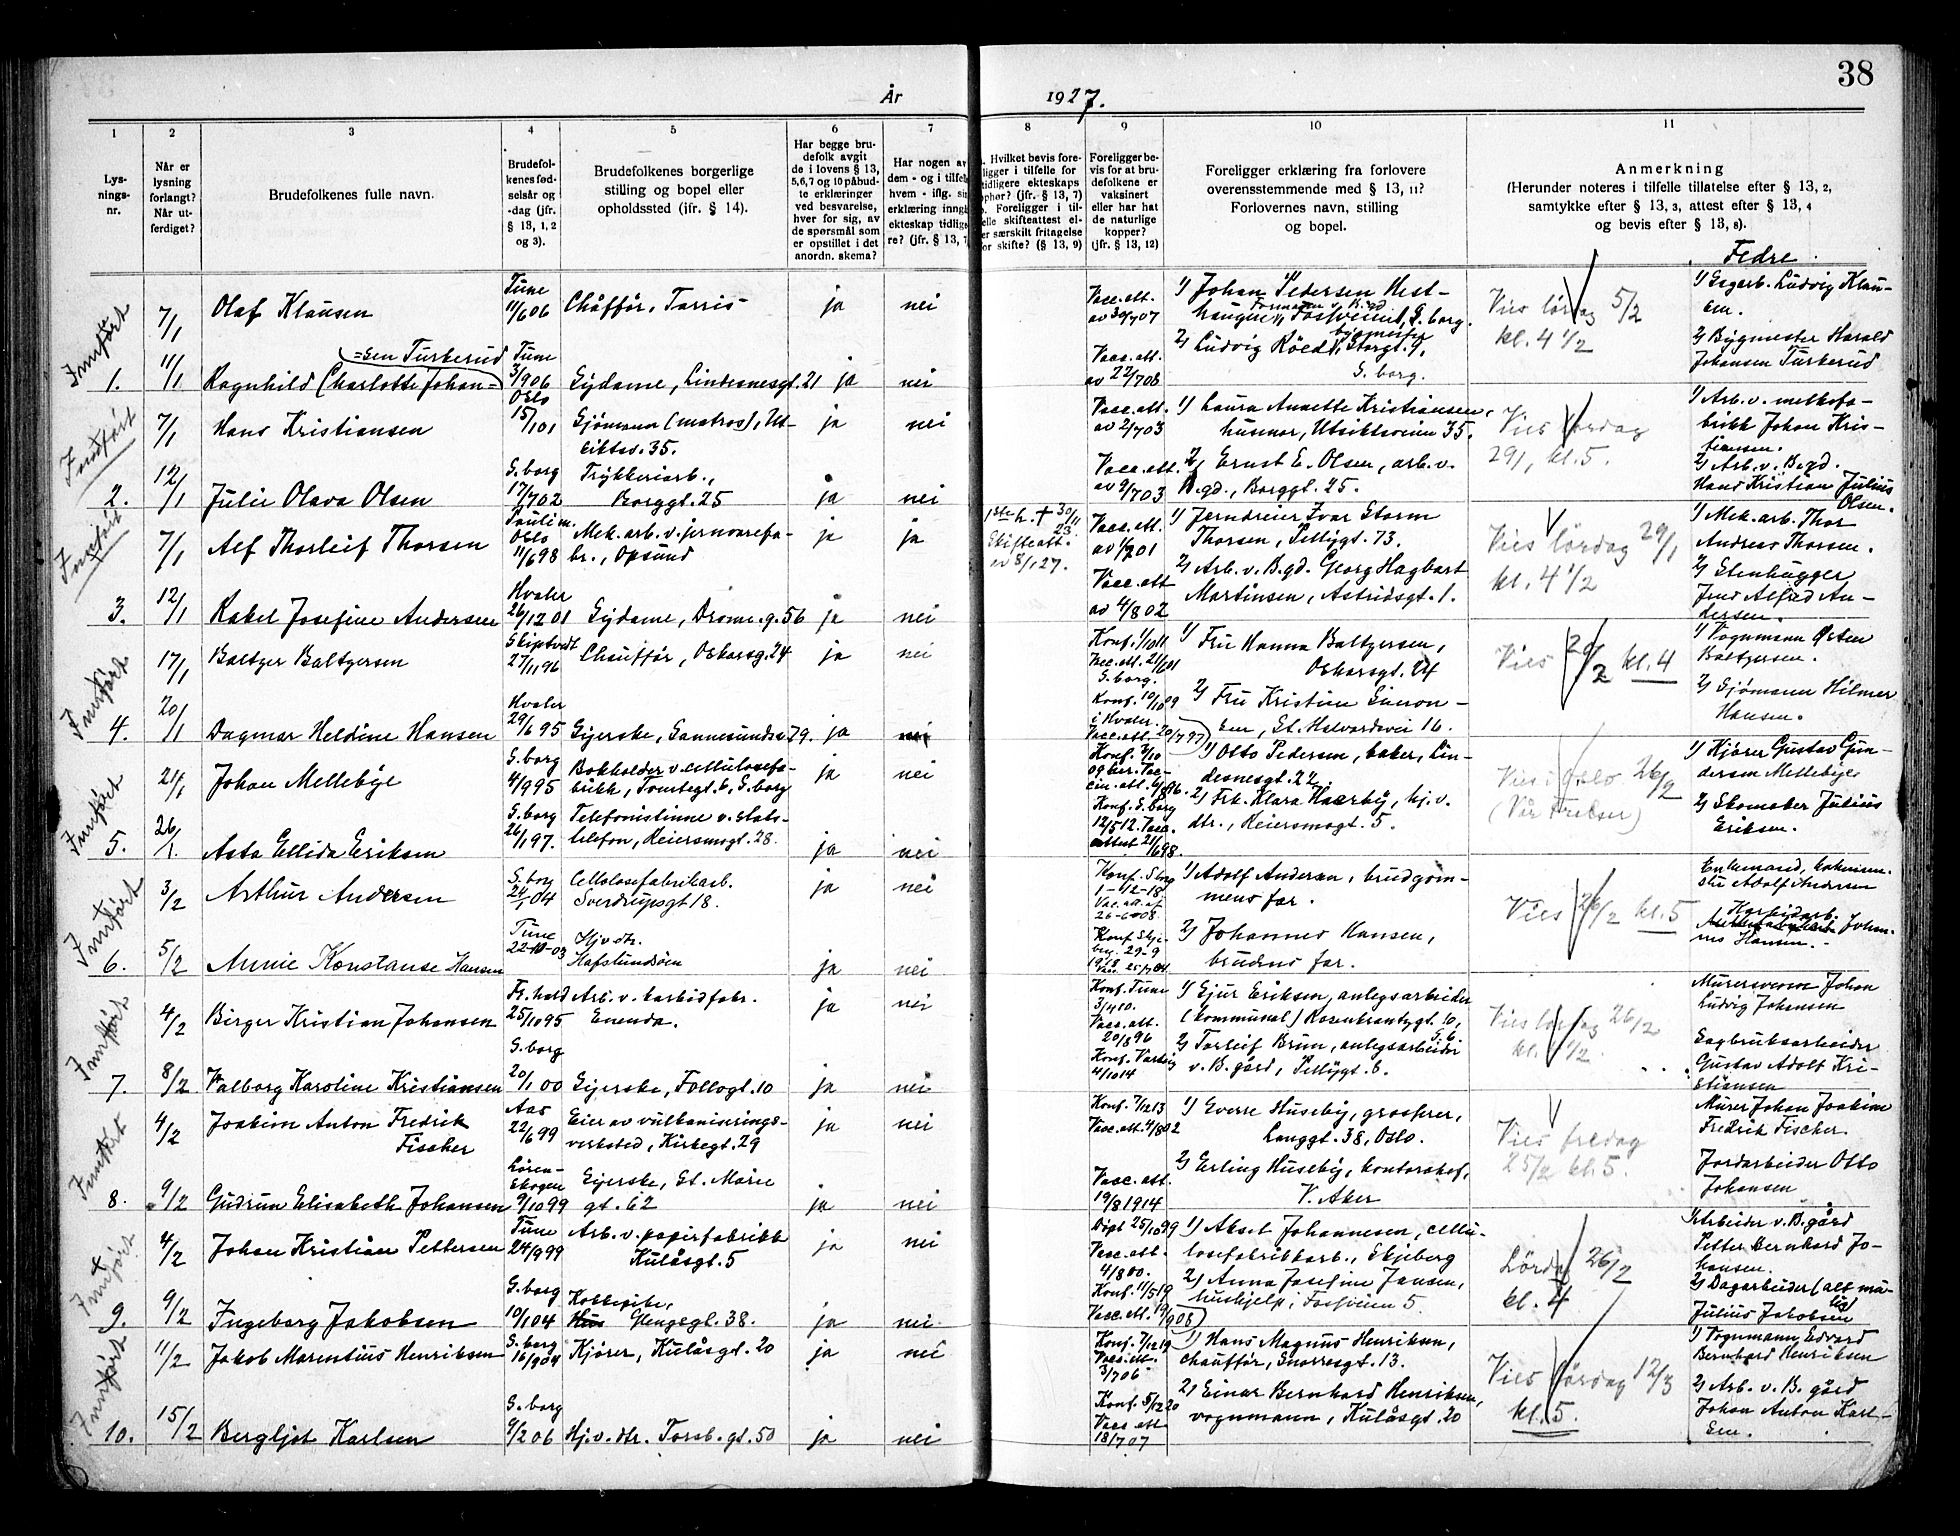 38
År 1927.
1
2
3
4
5
6
7
8
9
10
11
Lys-
nings-
nr.
Når er
lysning
forlangt?
Når ut-
ferdiget?
Brudefolkenes fulle navn.
Brudefol-
kenes fød-
selsår og
-dag (jfr.
§ 13, 1, 2
og 3).
Brudefolkenes borgerlige
stilling og bopel eller
opholdssted (jfr. § 14).
Har begge bru-
defolk avgit
de i lovens § 13,
5,6,7 og 10 påbud-
te erklæringer
ved besvarelse,
hver for sig, av
de spørsmål som
er opstillet i det
anordn. skema?
Har nogen av
dem - og i tilfelle
hvem - iflg. sin
erklæring inngåt
ekteskap tidlige-
re? (jfr. § 13, 7
Hvilket bevis fore-
ligger i tilfelle for
tidligere ekteskaps
ophør? (jfr. § 13, 7)
Foreligger i til-
felle skifteattest el-
er særskilt fritagelse
for skifte? (§ 13, 9)
Foreligger be-
vis for at bru-
defolkene er
vaksinert
eller har hat
de naturlige
kopper?
(jfr. § 13, 12)
Foreligger erklæring fra forlovere
overensstemmende med § 13, 11?
Forlovernes navn, stilling
og bopel.
Anmerkning
(Herunder noteres i tilfelle tillatelse efter § 13, 2,
samtykke efter § 13, 3, attest efter § 13, 4
og bevis efter § 13, 8).
Fedre.
Innført
1.
7/1
Olaf Klausen
Tune
11/6 06
Chåffør, Torris-
ja
nei
Vacc. att.
av 30/7 07
1) Johan Pedersen Hest-
haugen, Formann v. B.gd
Fossveien 1, S.borg.
Vies lørdag 5/2
kl. 4 1/2
1) Sagarb. Ludvig Klau-
sen.
11/1
=sen Turkerud
Ragnhild Charlotte Johan=
Tune
3/9 06
Sydame, Lindesnesgt. 21
ja
nei
Vacc. att.
av 22/7 08
2) Ludvig Röed, bygmester
Storgt. 9,
S. borg.
2) Bygmester Harald
Johansen Turkerud
Innført
2.
7/1
Hans Kristiansen
Oslo
15/1 01
Sjømann (matros), Ut-
siktsv. 35.
ja
nei
Vacc. att.
av 2/7 03
1) Laura Annette Kristiansen,
husmor, Utsiktsveien 35.
Vies lørdag
29/1, kl. 5.
1) Arb. v. melkefa-
brikk Johan Kris-
tiansen.
12/1
Julie Olava Olsen
S. borg
17/7 02
Trykkeriarb.,
Borggt. 25
ja
nei
Vacc. att.
av 9/7 03
2) Ernst E. Olsen, arb. v.
B.gd., Borggt. 25.
2) Arb. v. B.gd.
Hans Kristian Julius
Olsen.
Innført
3.
7/1
Alf Thorleif Thorsen
Paulim.
Oslo
11/6 98
Mek. arb. v. jernvarefa-
br., Opsund
ja
ja
1ste h. † 30/11 23.
Skifteatt.
av 8/1 27.
Vacc. att.
av 1/2 01
1) Jerndreier Ivar Storm
Thorsen, Pellygt. 73.
Vies lørdag 29/1
kl. 4 1/2
1) Mek. arb. Thor
Andreas Thorsen.
12/1
Rakel Josefine Andersen
Hvaler
26/12 01
Sydame, Dronn. g. 56
ja
nei
Vacc. att
av 4/8 02
2) Arb. v. B.gd. Georg Hagbart
Martinsen, Astridsgt. 1.
2) Stenhugger
Jens Alfred An-
dersen.
Innført
4.
17/1
Baltzer Baltzersen
Skiptvedt
27/11 96
Chauffør, Oskarsg. 24
ja
nei
Konf. 1/10 11
Vac. att. 21/6 01
S. borg.
1) Fru Hanna Baltzersen,
Oskarsgt. 24
Vies 20/2 kl. 4
1) Vognmann Østen
Baltzersen.
20/1
Dagmar Heldine Hansen
Hvaler
29/6 95
Syerske, Sannesundsv. 79.
ja
nei
Konf. 10/10 09
i Hvaler.
Vacc. att. 20/7 97
2) Fru Kristine Simon-
sen, St. Halvardsvei 16.
2) Sjømann Hilmer
Hansen.
Innført
5.
21/1
Johan Mellebye
S. borg
4/9 95
Bokholder v. cellulosefa-
brikk, Tomtegt. 6, S. borg
ja
nei
Konf. 3/10
09 her. Vac-
cin. att. 6/8 96.
1) Otto Pedersen, baker, Lin-
desnesgt. 22.
Vies i Oslo 26/2
(Vår Frelser)
1) Kjører Gustav Gun-
dersen Mellebye
26/1.
Asta Ellida Eriksen
S. borg
26/1 97.
Telefonistinne v. stats-
telefon, Reiersmogt. 28.
ja
nei
Konf. S. borg
12/5 12. Vacc.
attest 21/6 98.
2) Frk. Klara Haerby, hj. v.
dtr., Reiersmogt. 5.
2) Skomaker Julius
Eriksen.
Innført
6.
3/2
Arthur Andersen
S. borg
24/1 04
Cellulosefabrikarb.
Sverdrupsgt 18.
ja
nei
Konf. S borg
1-12-18
Vac. att. af
26-6-08.
1) Adolf Andersen, brudgom-
mens far.
Vies 26/2 kl. 5
Adolf Andersen
5/2
Annie Konstanse Hansen
Tune
22-10-03
Hjv. dtr.
Hafslundsöen
ja
nei
Konf. Skje-
berg 29-9
1918
Vacc. 25/7 04
2) Johannes Hansen,
brudens far.
Karbidarb.
Johan-
nes Hansen.
Innført
7.
4/2
Birger Kristian Johansen
Fr. hald
25/10 95
Arb. v. karbidfabr.
Enenda.
ja
nei
Konf. Tune
3/4 10.
Vacc. att.
20/8 96
1) Sjur Eriksen, anlegsarbeider
(kommunal) Rosenkrantzgt. 10,
S. b.
Vies lørdag 26/2
kl. 4 1/2
Murersvenn Johan
Ludvig Johansen
8/2
Valborg Karoline Kristiansen
S. borg
20/1 00
Syerske, Follogt. 10
ja
nei
Konf. Varteig
4/10 14
2) Torleif Brun, anlegsarbeider
v. B. gård, Pellygt. 6.
Sagbruksarbeider
Gustav Adolf Kri-
stiansen
Innført
8.
4/2
Joakim Anton Fredrik
Fischer
Aas
22/6 99
Eier av vulkaniserings-
verksted, Kirkegt. 29
ja
nei
Konf. 7/12 13
Vacc. att. 9/8 02
1) Sverre Huseby, grosserer,
Langgt. 38, Oslo.
Vies fredag
25/2 kl. 5.
Murer Johan Joakim
Fredrik Fischer
9/2
Gudrun Elisabeth Johansen
Lören-
skogen
9/10 99
Syerske, St. Marie
gt. 62
ja
nei
Vacc. att.
19/8 1914
2) Erling Huseby, kontorchef,
V. Aker
Jordarbeider Otto
Johansen
Innført
9.
4/2
Johan Kristian Pettersen
Tune
24/9 99
Arb. v. papirfabrikk
Kulåsgt. 5
ja
nei
Döpt 25/10 99
Vacc. att.
4/8 00.
1) Aksel Johannesen, cellu-
losefabrikkarb., Skjeberg
Lördag 26/2
kl. 4
1) Arbeider v. B. gård
Petter Bernhard Jo-
hansen.
9/2
Ingeborg Jakobsen
S. borg
10/1 04
Kokkepike,
Glengsgt. 38.
ja
nei.
Konf. 11/5 19
Vacc. att. 19/9 08
2) Anna Josefine Jansen,
hushjelp, Fossveien 5.
2) Dagarbeider (alt mu-
lig)
Julius Jakobsen
Innført
10.
11/2
Jakob Marentius Henriksen
S. borg
16/9 04
Kjører, Kulåsgt. 20
ja
nei
Konf. 7/12 19
Vacc. att.
3/7 06
1) Hans Magnus Henriksen,
chauffør, Snorresgt. 13.
Vies lørdag 12/3
kl. 5.
1) Vognmann Edvard
Bernhard Henriksen
15/2
Bergljot Karlsen
S. borg
9/2 06
Hj. v. dtr. Torsb. gt. 50
ja
nei
Konf. 5/12 20
Vacc att
18/7 07
2) Einar Bernhard Henriksen,
vognmann, Kulåsgt. 20
2) Arb. v. B. gård
Johan Anton Karl-
sen.